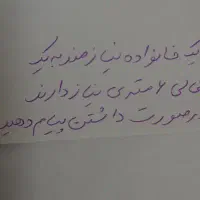 یک خانواده نیازمند به یک
قالی ۶ متری نیاز دارند
در صورت داشتن پیام دهید